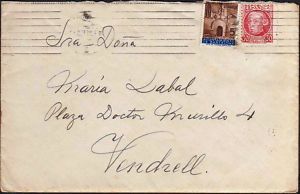 Sra Doña
María Labal
Plaza Doctor Murillo 4
Vendrell.